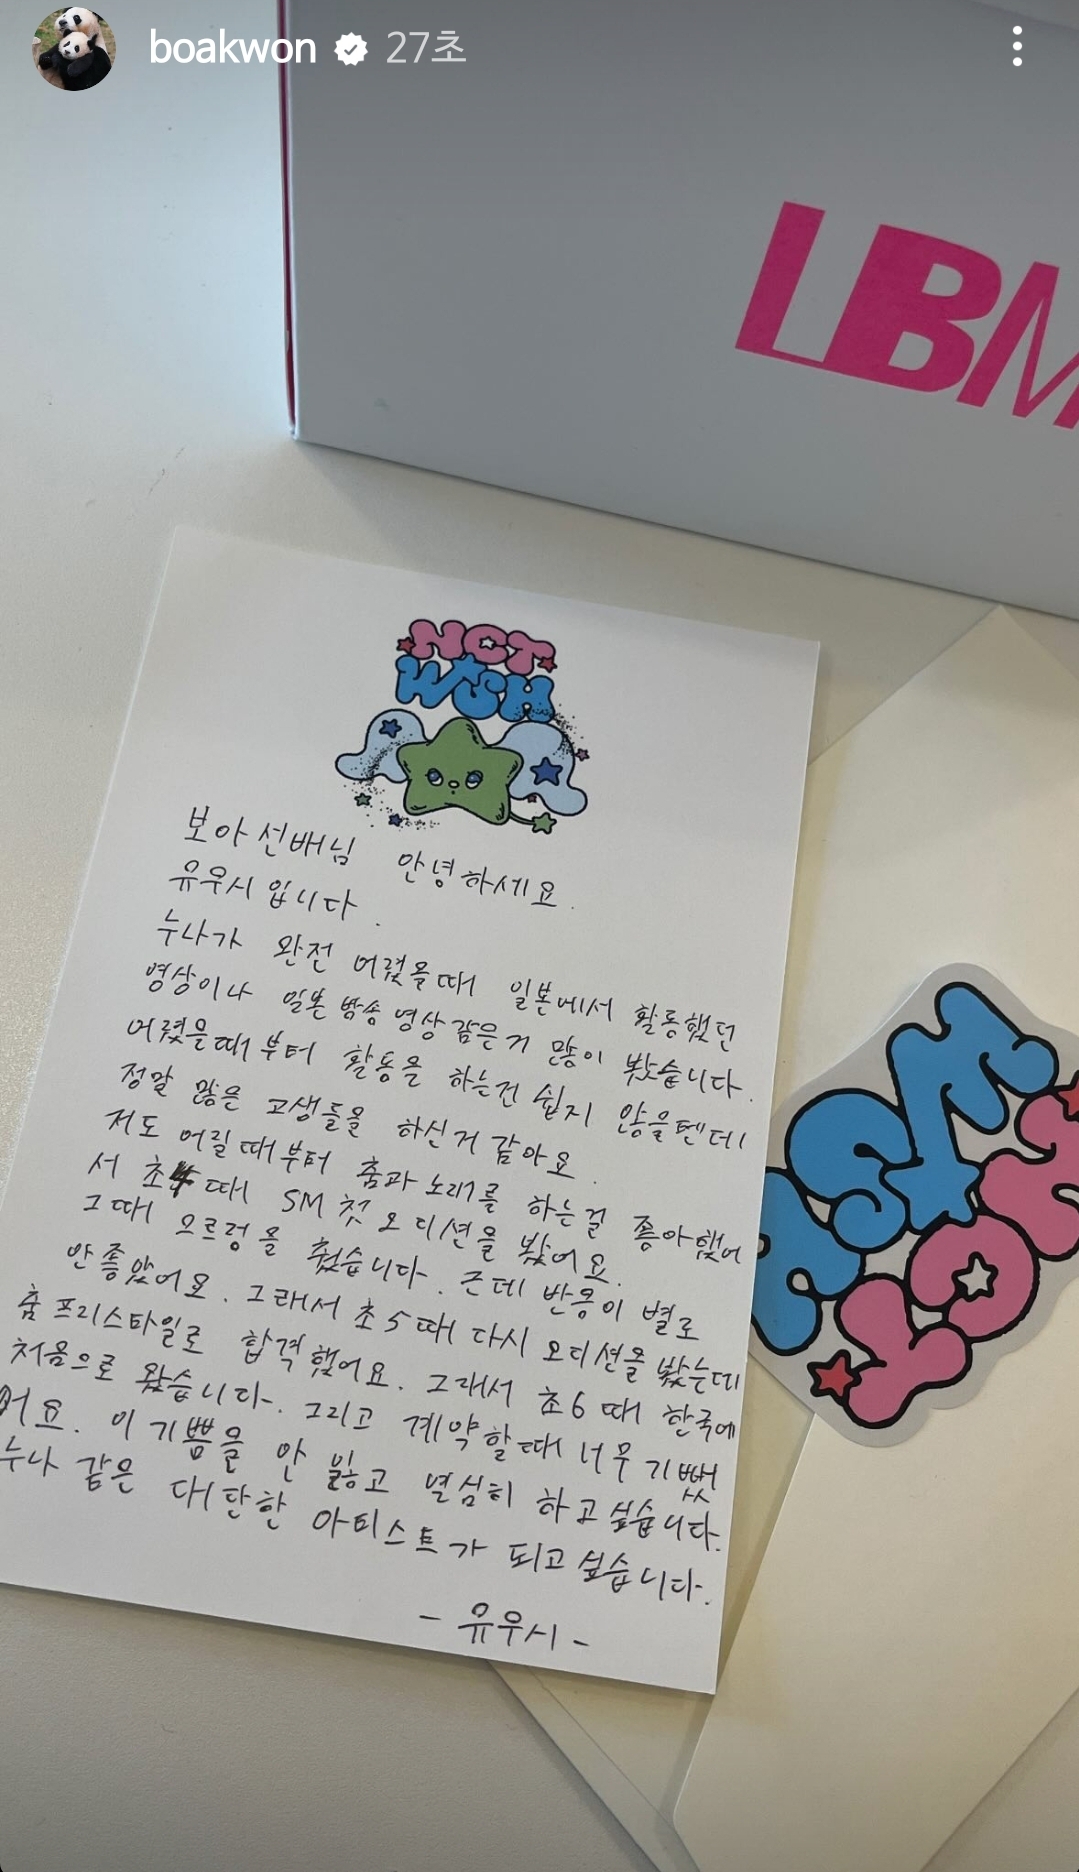 boakwon 27초
LBM
NCT
WISH
보아선배님 안녕하세요.
유우시입니다.
누나가 완전 어렸을때 일본에서 활동했던
영상이나 일본 방송 영상 같은거 많이 봤습니다.
어렸을때부터 활동을 하는건 쉽지 않을텐데
정말 많은 고생들을 하신거 같아요.
저도 어릴때부터 춤과 노래를 하는걸 좋아했어
서 초4때 SM 첫 오디션을 봤어요.
그때 으르렁을 췄습니다. 근데 반응이 별로
안좋았어요. 그래서 초5때 다시 오디션을 봤는데
춤프리스타일로 합격했어요. 그래서 초6때 한국에
처음으로 왔습니다. 그리고 계약할때 너무 기뻤
어요. 이 기쁨을 안 잃고 열심히 하고싶습니다.
누나 같은 대단한 아티스트가 되고싶습니다.
- 유우시 -
WISH
NCT